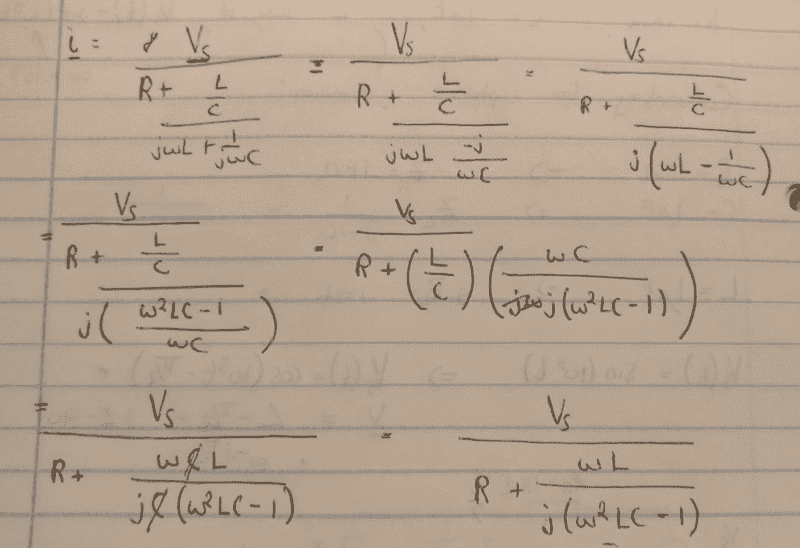 i = Vs / (R + (L/C) / (jωL + 1/jωC)) = Vs / (R + (L/C) / (jωL -j/ωC)) = Vs / (R + (L/C) / (j(ωL - 1/ωC)))
= Vs / (R + (L/C) / (j((ω²LC-1)/ωC))) = Vs / (R + (L/C) (ωC / j(ω²LC-1)))
= Vs / (R + ωCL / jC(ω²LC-1)) = Vs / (R + ωL / j(ω²LC-1))